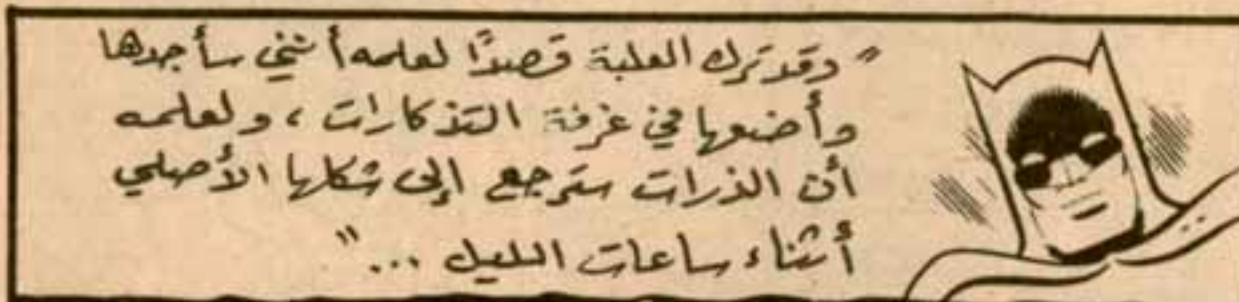 "وقد ترك العلبة قصدًا لعلمه أنني سأجدها
وأضعها في غرفة التذكارات، ولعلمه
أن الذرات سترجع إلى شكلها الأصلي
أثناء ساعات الليل ..."